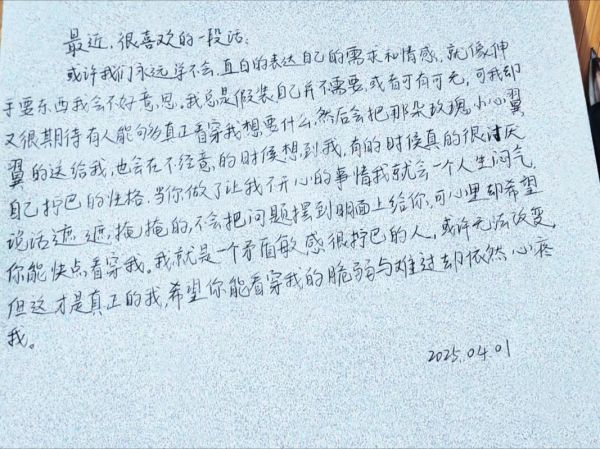 最近,很喜欢的一段话:
或许我们永远学不会,直白的表达自己的需求和情感,就像伸
手要东西我会不好意思。我总是假装自己并不需要,或者可有可无,可我却
又很期待有人能够真正看穿我想要什么,然后会把那朵玫瑰小心翼
翼的送给我,也会在不经意的时候想到我,有的时候真的很讨厌
自己拧巴的性格,当你做了让我不开心的事情我就会一个人生闷气,
说话遮遮掩掩的,不会把问题摆到明面上给你,可心里却希望
你能快点看穿我。我就是一个矛盾敏感很拧巴的人,或许无法改变,
但这才是真正的我,希望你能看穿我的脆弱与难过却依然心疼
我。
2025.04.01